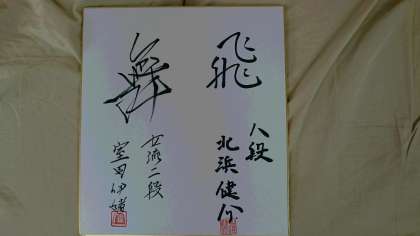 飛
八段
北浜健介
舞
女流二段
室田伊緒